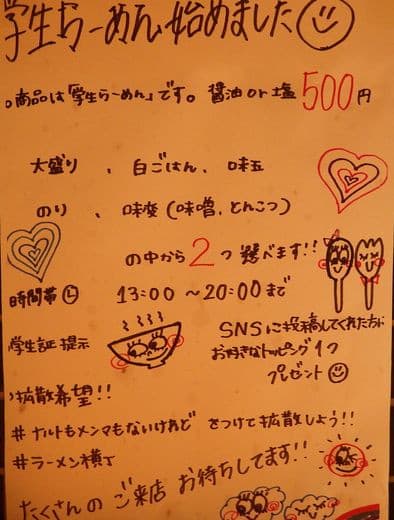 学生らーめん始めました
○商品は「学生らーめん」です。 醤油or塩 500円
大盛り 、 白ごはん、 味玉
のり 、 味変(味噌、とんこつ)
の中から2つ選べます!!
時間帯 13:00 ~20:00まで
学生証提示
SNSに投稿してくれた方に
お好きなトッピング1つ
プレゼント
拡散希望!!
#ナルトもメンマもないけれど をつけて拡散しよう!!
#ラーメン横丁
たくさんの ご来店 お待ちしてます!!